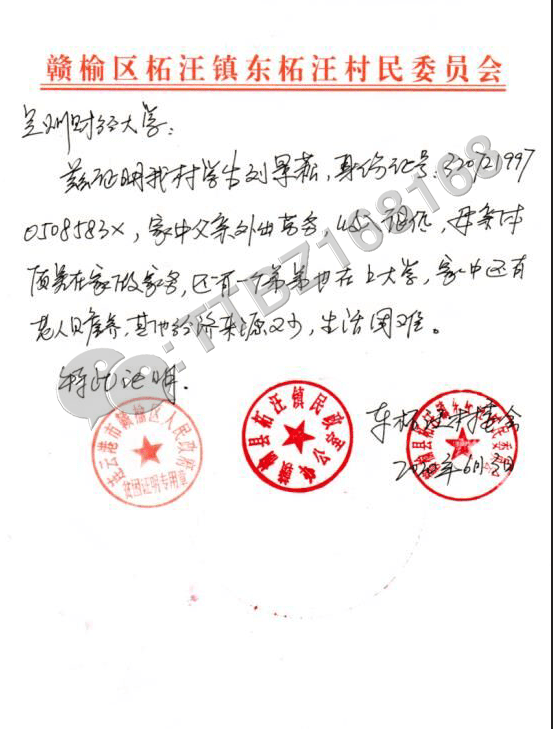 赣榆区柘汪镇东柘汪村民委员会
兰州财经大学：
兹证明我村学生刘景菘，身份证号：320721997
0508583X，家中父亲外出劳务，收入很低，母亲体
质差在家做家务，还有一个弟弟也在上大学，家中还有
老人见赡养，其他经济来源又少，生活困难。
特此证明．
东柘汪村委会
2020年6月3日
连云港市赣榆区人民政府
贫困证明专用章
赣榆县柘汪镇民政办公室
赣榆县柘汪镇东柘汪村民委员会
:TTBZ168168